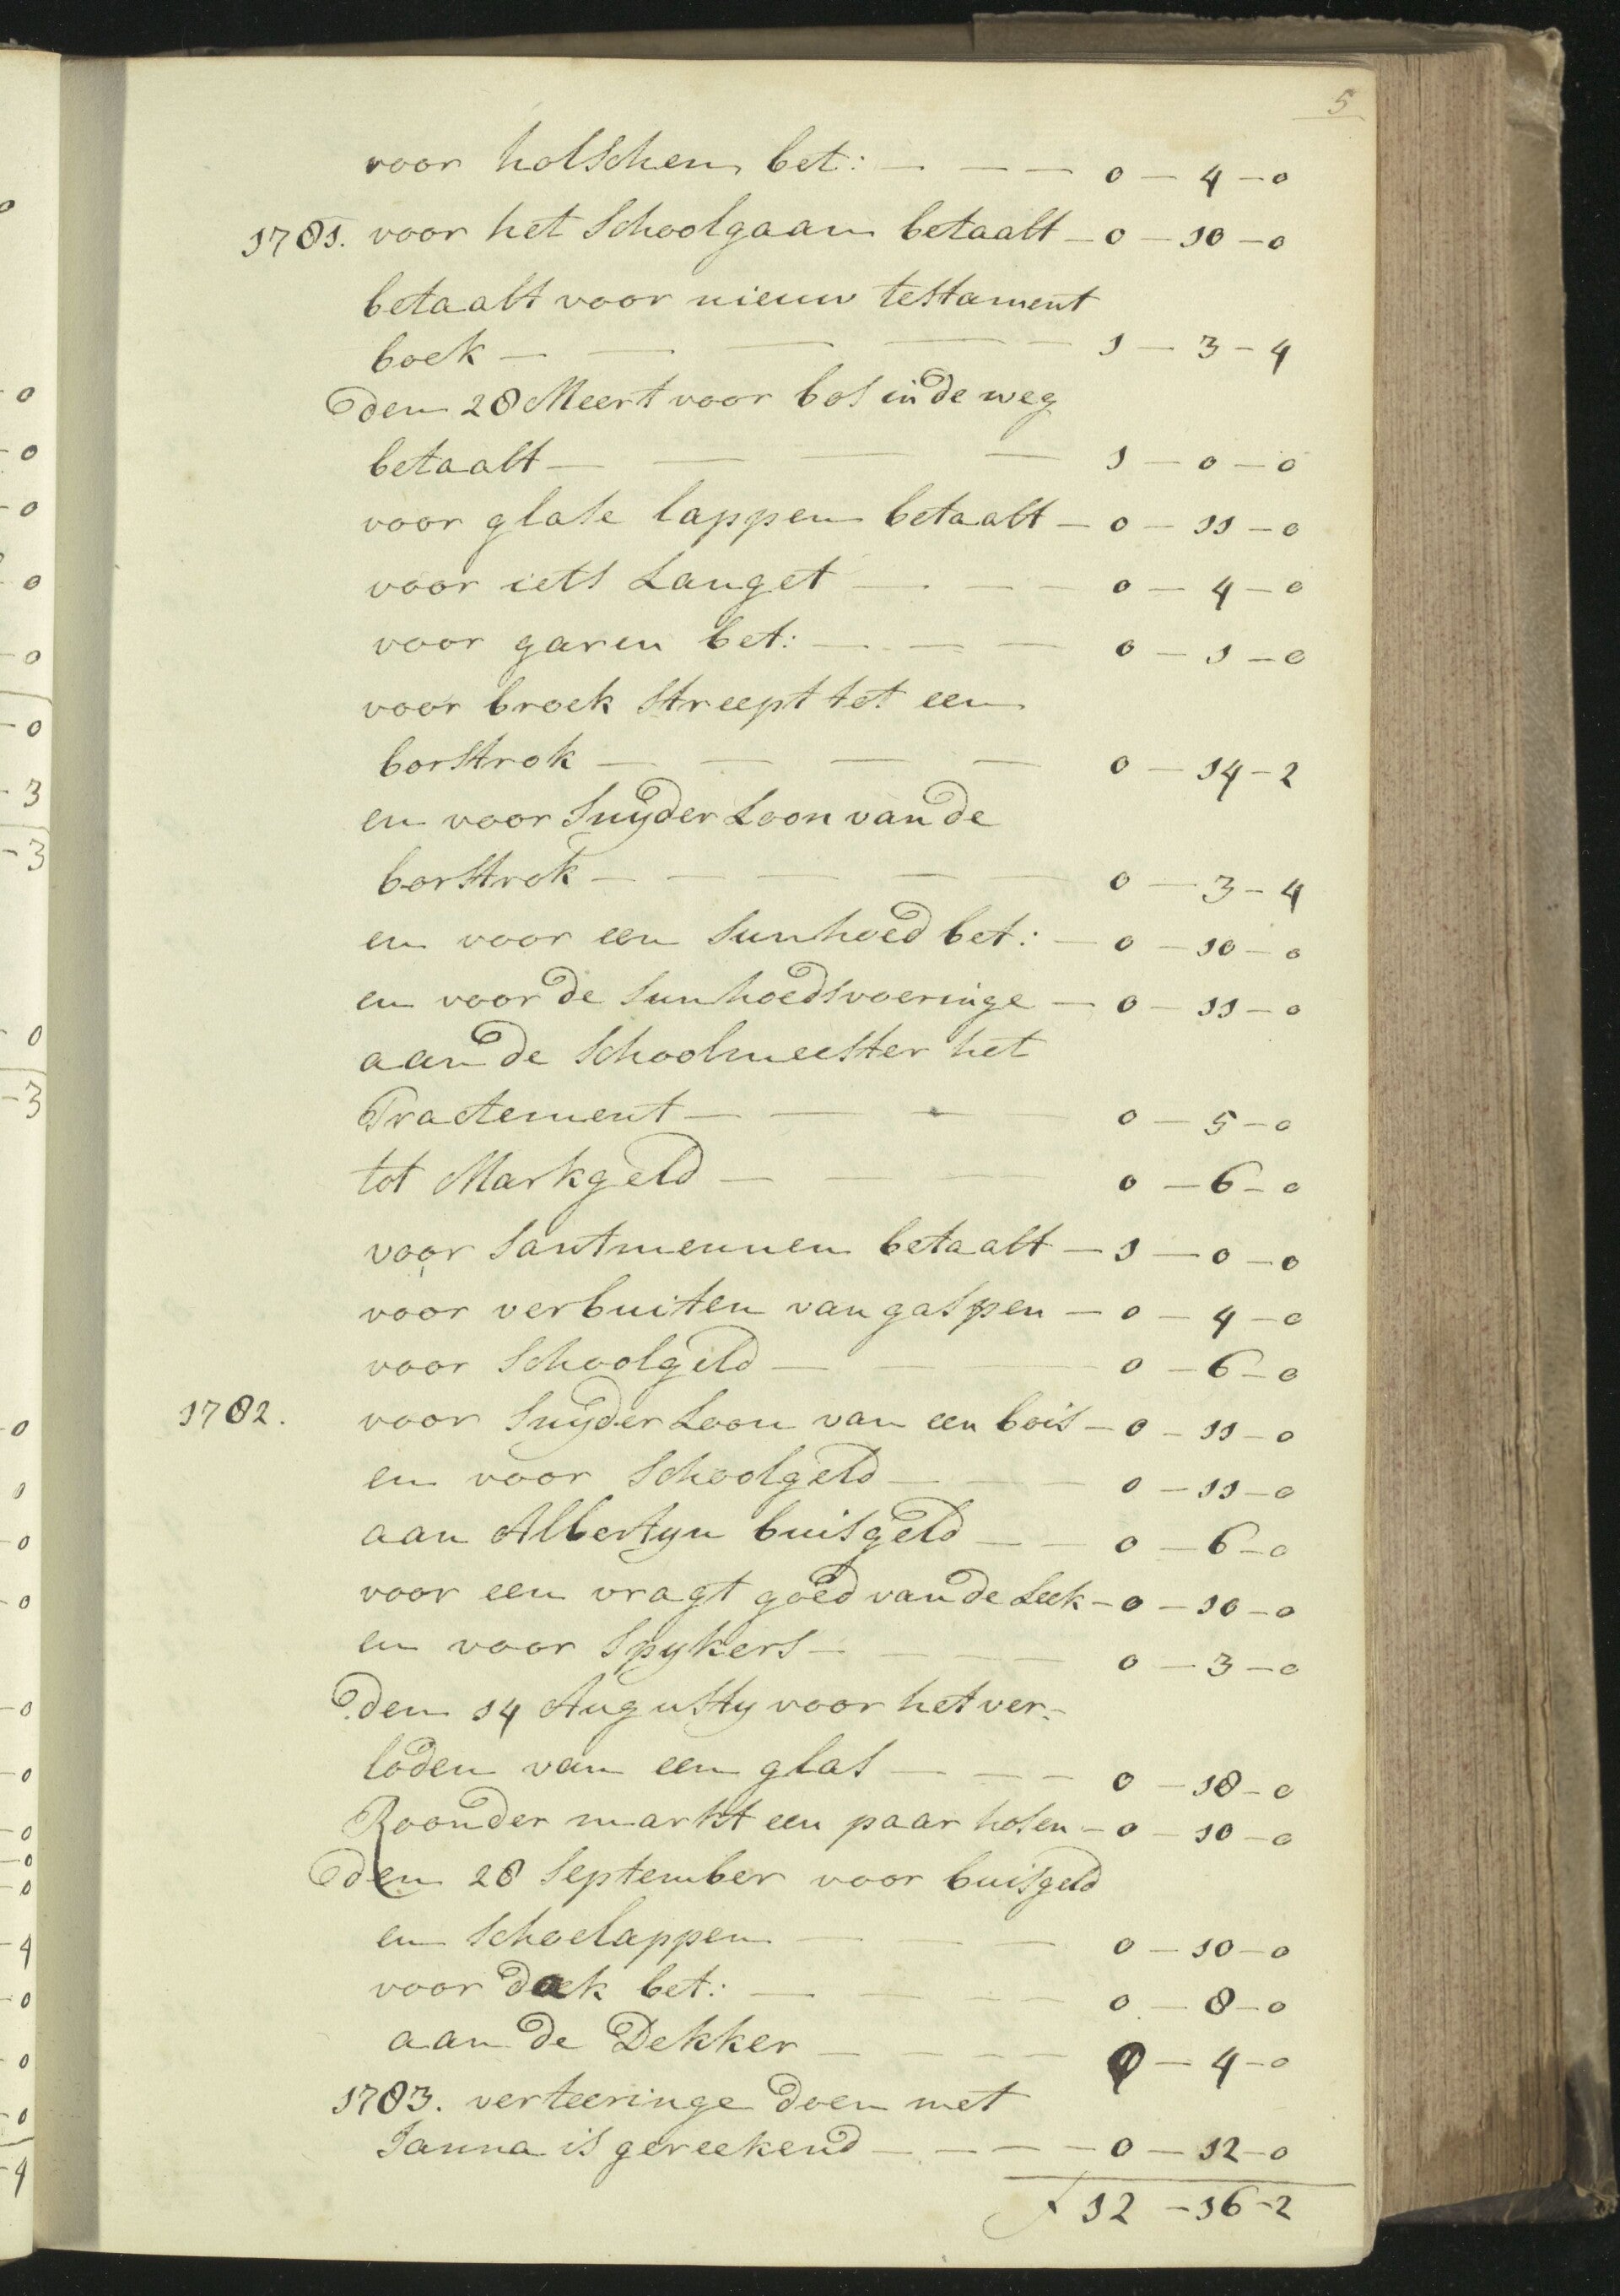 5
voor holschen bet: — — — 0 — 4 — 0
1781. voor het Schoolgaan betaalt — 0 — 10 — 0
betaalt voor nieuw testament
boek — — — — — 1 — 3 — 4
den 28 Meert voor bos in de weg
betaalt — — — — 1 — 0 — 0
voor glase lappen betaalt — 0 — 11 — 0
voor iets Langet — — — 0 — 4 — 0
voor garen bet: — — — 0 — 1 — 0
voor broek streept tot een
borstrok — — — — 0 — 14 — 2
en voor Snyder Loon van de
borstrok — — — — — 0 — 3 — 4
en voor een sunhoed bet: — 0 — 10 — 0
en voor de sunhoedsvoeringe — 0 — 11 — 0
aan de Schoolmeester het
Tractement — — — — 0 — 5 — 0
tot Markgeld — — — 0 — 6 — 0
voor Santmennen betaalt — 1 — 0 — 0
voor verbuiten van gaspen — 0 — 4 — 0
voor Schoolgeld — — — 0 — 6 — 0
1782. voor Snyder Loon van een bois — 0 — 11 — 0
en voor Schoolgeld — — — 0 — 11 — 0
aan Albertyn buisgeld — — 0 — 6 — 0
voor een vragt goed van de Leek — 0 — 10 — 0
en voor Spykers — — — — 0 — 3 — 0
den 14 Augusty voor het ver-
loden van een glas — — — 0 — 18 — 0
Roonder markt een paar hosen — 0 — 10 — 0
den 28 September voor buisgeld
en Schoelappen — — — 0 — 10 — 0
voor doek bet: — — — — 0 — 8 — 0
aan de Dekker — — — — 0 — 4 — 0
1783. verteeringe doen met
Janna is gereekend — — — — 0 — 12 — 0
f 12 — 16 — 2